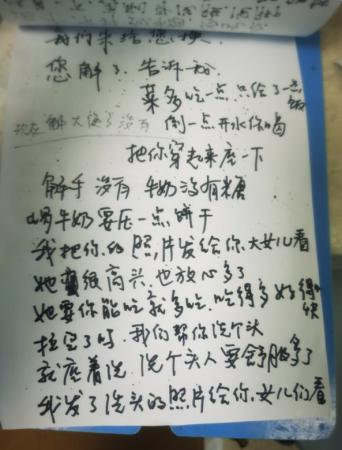 我们来给您换
您解了.告诉我
菜多吃一点只给了一点饭
现在解大便了没有 倒一点开水你喝
把你穿起来座一下
解手没有 牛奶没有糖
喝牛奶要压一点饼干
我把你.的照片发给你.大女儿看
她很高兴.也放心多了
她要你能吃就多吃.吃得多好得快
拉完了吗.我们帮你洗个头
就座着洗.洗个头人要舒服多了
我发了洗头的照片给你.女儿们看